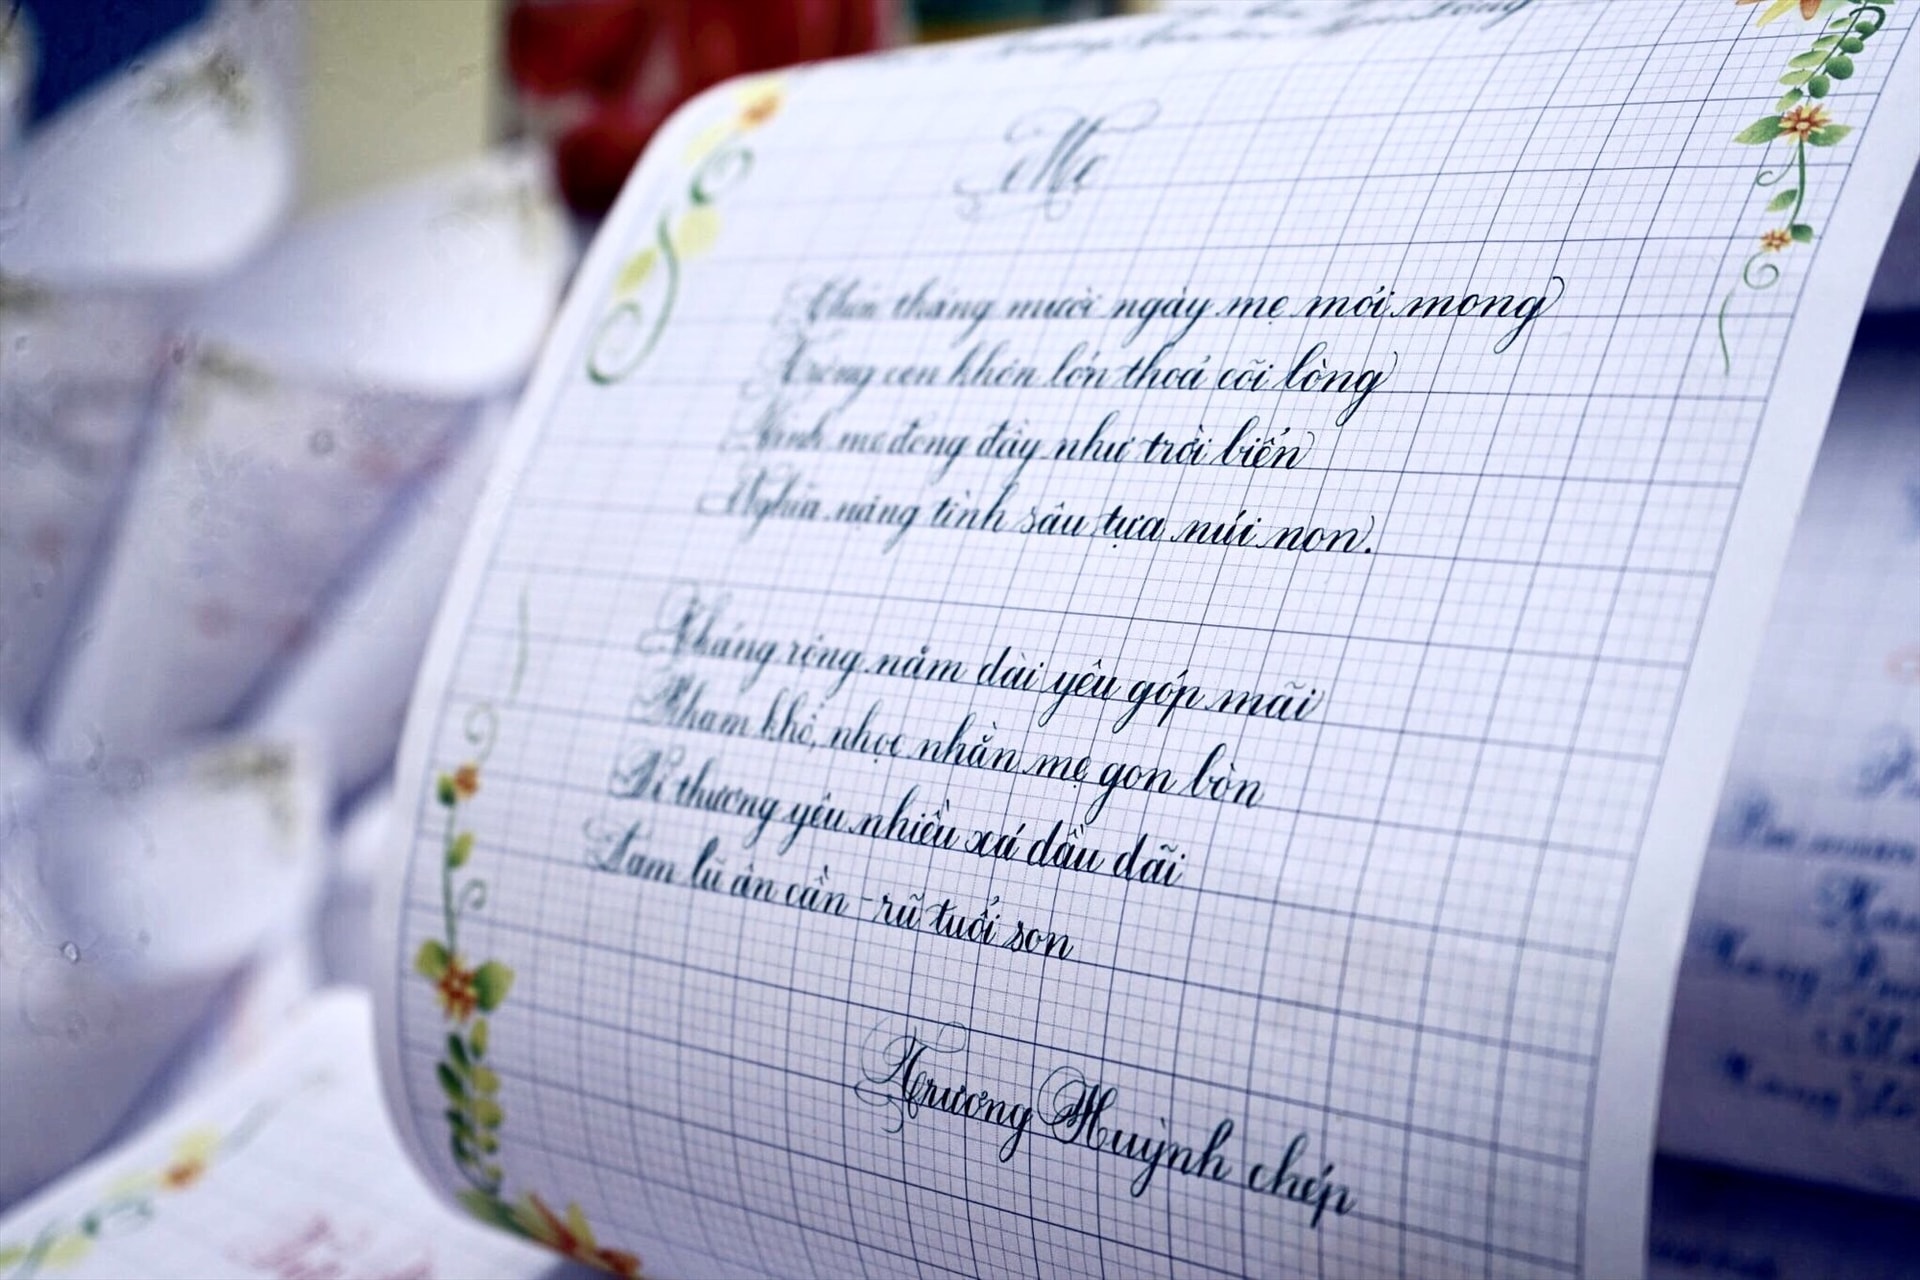 Mẹ
Chín tháng mười ngày mẹ mỏi mong
Trông con khôn lớn thoả cõi lòng
mẹ đong đầy như trời biển
Nghĩa nặng tình sâu tựa núi non.
Tháng rộng năm dài yêu góp mãi
Nham khổ, nhọc nhằn mẹ gon bòn
Bỉ thương yêu nhiều xá dầu dãi
Lam lũ ân cần - rũ tuổi son
Trương Huỳnh chép